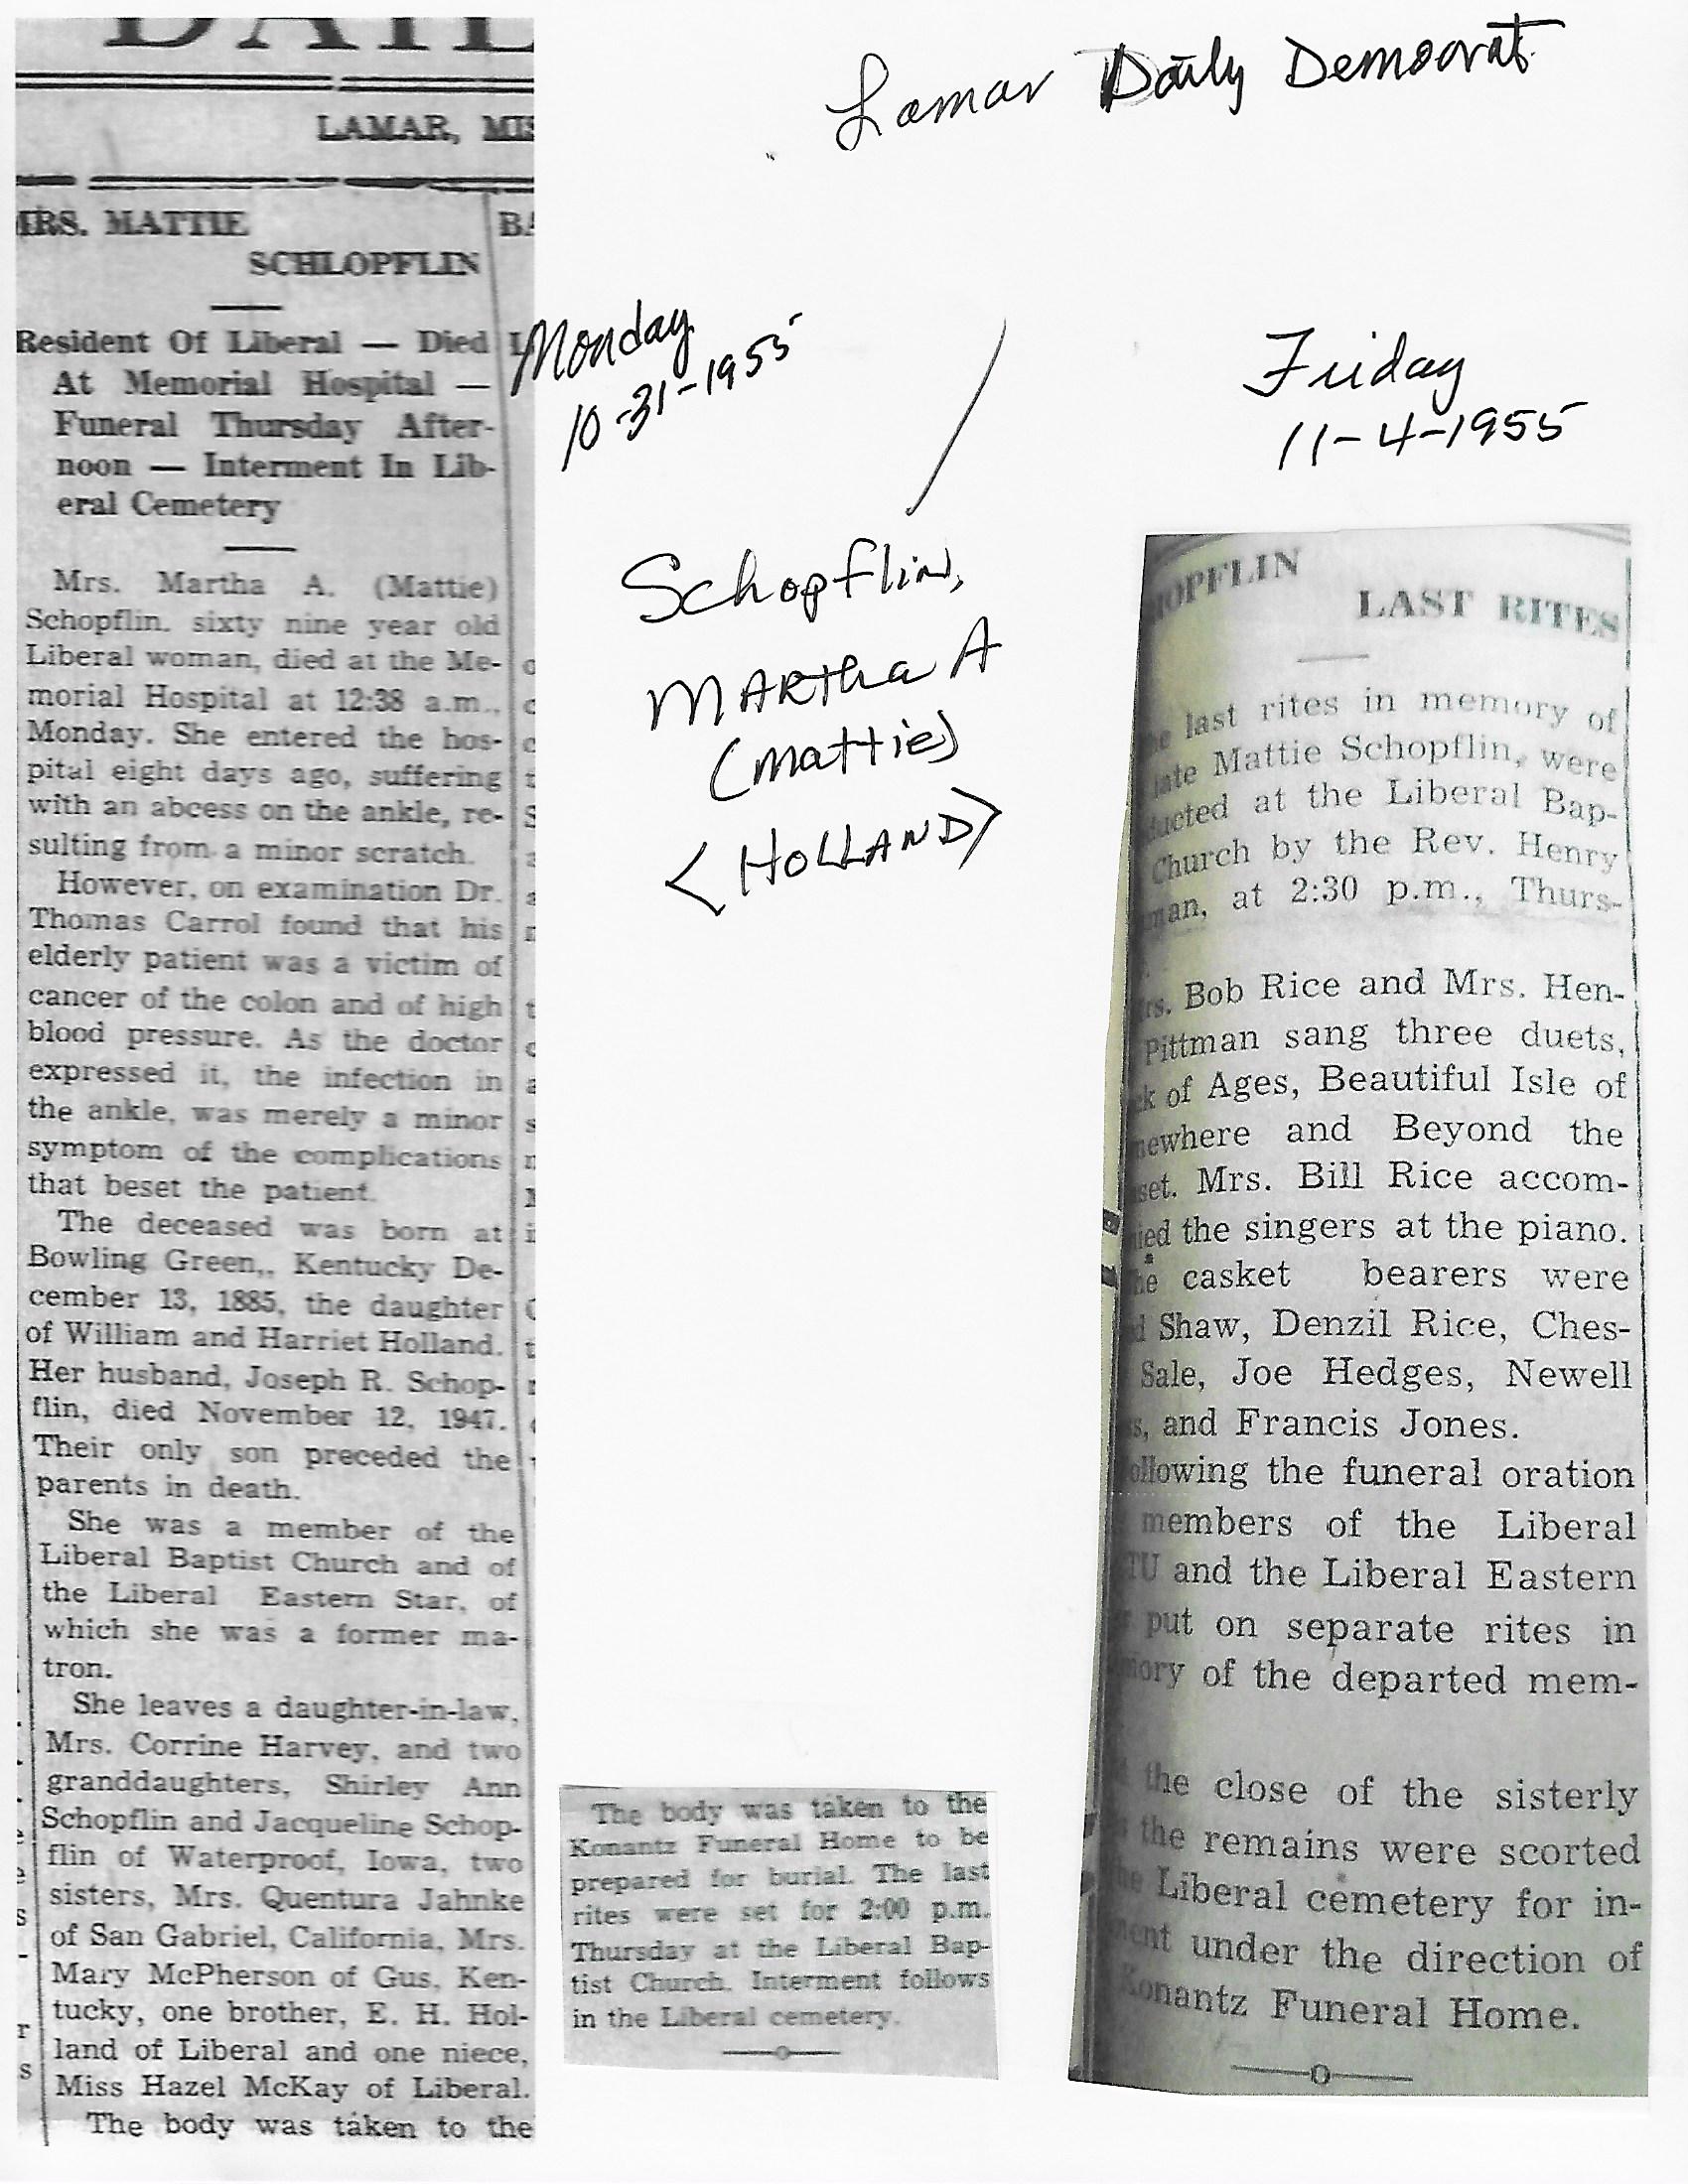 Lamar Daily Democrat
DAIL
LAMAR, MIS
MRS. MATTIE
SCHLOPFLIN
Resident Of Liberal — Died
At Memorial Hospital —
Funeral Thursday After-
noon — Interment In Lib-
eral Cemetery
Mrs. Martha A. (Mattie)
Schopflin. sixty nine year old
Liberal woman, died at the Me-
morial Hospital at 12:38 a.m.,
Monday. She entered the hos-
pital eight days ago, suffering
with an abcess on the ankle, re-
sulting from a minor scratch.
However, on examination Dr.
Thomas Carrol found that his
elderly patient was a victim of
cancer of the colon and of high
blood pressure. As the doctor
expressed it, the infection in
the ankle, was merely a minor
symptom of the complications
that beset the patient.
The deceased was born at
Bowling Green,, Kentucky De-
cember 13, 1885, the daughter
of William and Harriet Holland.
Her husband, Joseph R. Schop-
flin, died November 12, 1947.
Their only son preceded the
parents in death.
She was a member of the
Liberal Baptist Church and of
the Liberal Eastern Star, of
which she was a former ma-
tron.
She leaves a daughter-in-law,
Mrs. Corrine Harvey, and two
granddaughters, Shirley Ann
Schopflin and Jacqueline Schop-
flin of Waterproof, Iowa, two
sisters, Mrs. Quentura Jahnke
of San Gabriel, California, Mrs.
Mary McPherson of Gus, Ken-
tucky, one brother, E. H. Hol-
land of Liberal and one niece,
Miss Hazel McKay of Liberal.
The body was taken to the
Monday
10-31-1955
Schopflin,
MARtha A
(Mattie)
<HOLLAND>
The body was taken to the
Konantz Funeral Home to be
prepared for burial. The last
rites were set for 2:00 p.m.
Thursday at the Liberal Bap-
tist Church. Interment follows
in the Liberal cemetery.
Friday
11-4-1955
HOPFLIN
LAST RITES
he last rites in memory of
late Mattie Schopflin, were
ducted at the Liberal Bap-
Church by the Rev. Henry
man, at 2:30 p.m., Thurs-
rs. Bob Rice and Mrs. Hen-
Pittman sang three duets,
ck of Ages, Beautiful Isle of
newhere and Beyond the
set. Mrs. Bill Rice accom-
ied the singers at the piano.
he casket bearers were
d Shaw, Denzil Rice, Ches-
Sale, Joe Hedges, Newell
s, and Francis Jones.
ollowing the funeral oration
members of the Liberal
TU and the Liberal Eastern
put on separate rites in
mory of the departed mem-
the close of the sisterly
the remains were scorted
he Liberal cemetery for in-
ment under the direction of
Konantz Funeral Home.